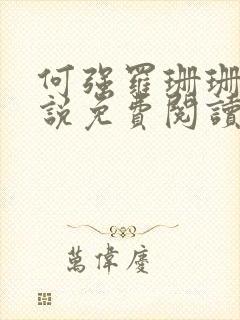 何强羅珊珊
說免費閱讀
萬偉慶